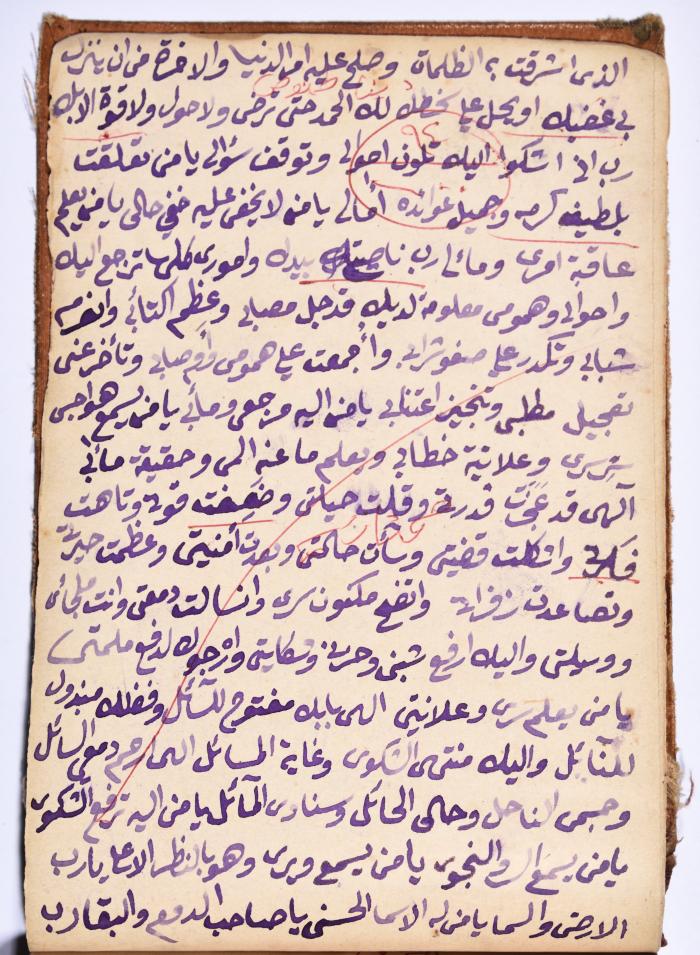 الذى اشرقت به الظلمات وصلح عليه امر الدنيا والاخرة من ان ينزل
بى غضبك او يحل على سخطك لك الحمد حتى ترضى ولا حول ولا قوة الا بك
رب انى اشكوا اليك تلون احوالى وتوقف سؤالى يا من تعلقت
٩٤
بلطيف كرمه وجميل عوائده أمالى يا من لا يخفى عليه خفى حالى يا من يعلم
عاقبة امرى ومالى رب ناصيتى بيدك وامورى كلها ترجع اليك
واحوالى وهمومى معلومة لديك قد جل مصابى وعظم اكتئابى وانصرم
شبابى وتكدر على صفو شرابى وأجمعت على همومى وأوصابى وتأخر عنى
تعجيل مطلبى وتنجيز اعتنابى يا من اليه مرجعى ومأبى يا من يسمع هواجس
سرى وعلانية خطابى ويعلم ما عند المى وحقيقة مابى
الهى قد عجزت قدرتى وقلت حيلتى وضعفت قوتى وتاهت
فكرتى واشكلت قضيتى وسأت حالتى وبعدت أمنيتى وعظمت حيرتى
وتصاعدت زفراتى واتضح مكنون سرى وانسالت دمعتى وانت ملجائى
ووسيلتى واليك ارفع بثى وحزنى وشكايتى وارجوك لدفع ملمتى
يا من يعلم سرى وعلانيتى الهى بابك مفتوح للسائل وفضلك مبذول
للنائل واليك منتهى الشكوى وغاية المسائل الهى ارحم دمعى السائل
وجسمى الناحل وحالى الحائل وسنادى المائل يا من اليه ترفع الشكوى
يا من يسمع السر والنجوى يا من يسمع ويرى وهو بالنظر الاعلى يا رب
الارض والسما يا من له الاسما الحسنى يا صاحب الدوم والبقا رب